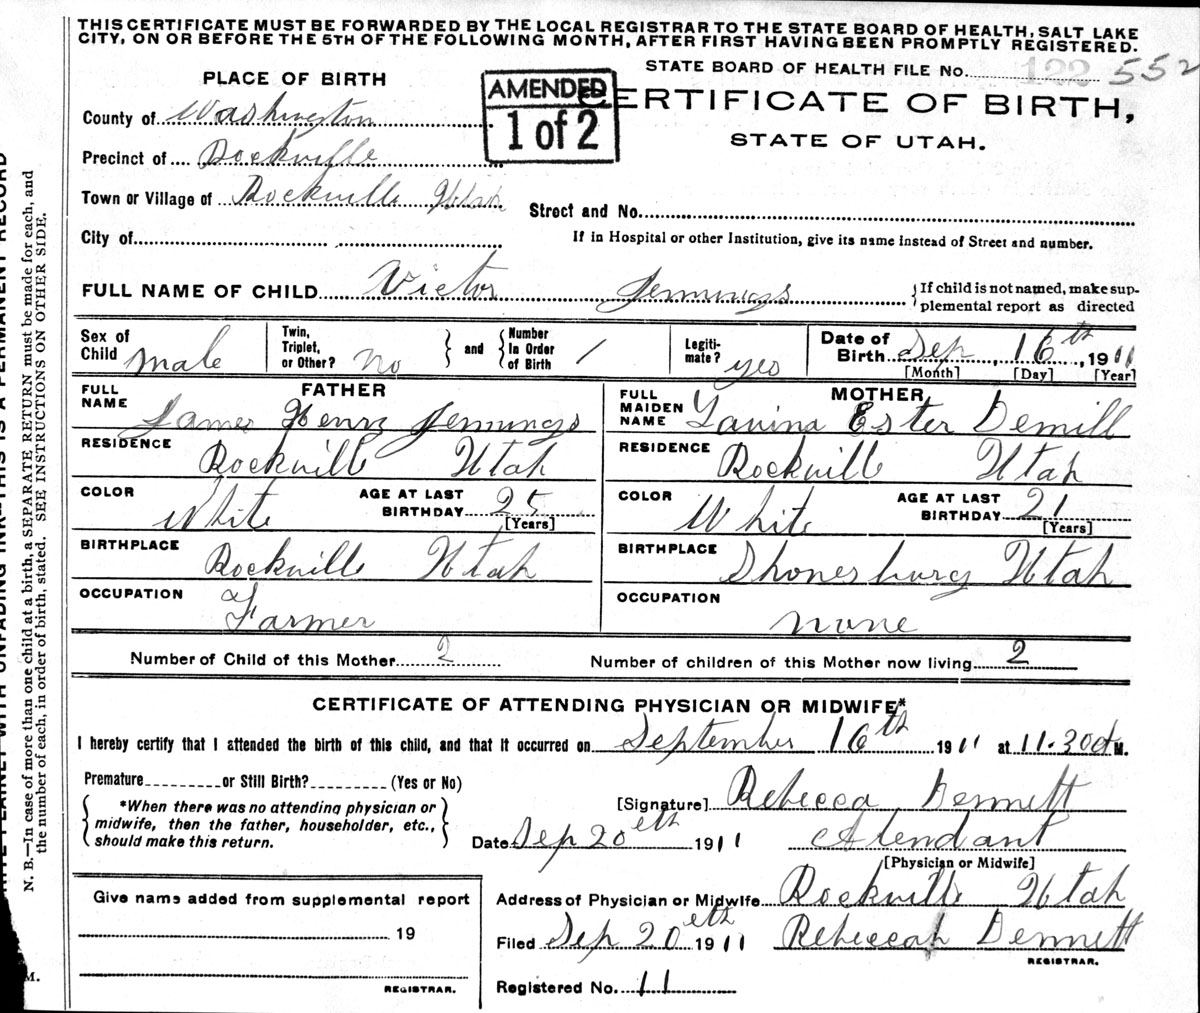 THIS CERTIFICATE MUST BE FORWARDED BY THE LOCAL REGISTRAR TO THE STATE BOARD OF HEALTH, SALT LAKE
CITY, ON OR BEFORE THE 5TH OF THE FOLLOWING MONTH, AFTER FIRST HAVING BEEN PROMPTLY REGISTERED.
STATE BOARD OF HEALTH FILE No. 122 552
PLACE OF BIRTH
AMENDED
1 of 2
CERTIFICATE OF BIRTH,
STATE OF UTAH.
County of Washington
Precinct of Rockville
Town or Village of Rockville Utah
Street and No.
City of
If in Hospital or other Institution, give its name instead of Street and number.
FULL NAME OF CHILD Victor Jennings
If child is not named, make sup-
plemental report as directed
Sex of Child male
Twin, Triplet, or Other? No
and
Number In Order of Birth 1
Legiti-mate? yes
Date of Birth Sep, 16th, 1911
[Month] [Day] [Year]
FATHER
FULL NAME James Henry Jennings
RESIDENCE Rockville Utah
COLOR White AGE AT LAST BIRTHDAY 25 [Years]
BIRTHPLACE Rockville Utah
OCCUPATION Farmer
MOTHER
FULL MAIDEN NAME Lavina Ester Demill
RESIDENCE Rockville Utah
COLOR White AGE AT LAST BIRTHDAY 21 [Years]
BIRTHPLACE Shonesburg Utah
OCCUPATION none
Number of Child of this Mother 2
Number of children of this Mother now living 2
CERTIFICATE OF ATTENDING PHYSICIAN OR MIDWIFE*
I hereby certify that I attended the birth of this child, and that it occurred on September 16th 1911 at 11.30 M.
Premature or Still Birth? (Yes or No)
*When there was no attending physician or
midwife, then the father, householder, etc.,
should make this return.
[Signature] Rebecca Dennett
Date Sep 20eth 1911 Atendant
[Physician or Midwife]
Address of Physician or Midwife Rockville Utah
Give name added from supplemental report
19
REGISTRAR.
Filed Sep 20eth 1911 Rebeccah Dennett
REGISTRAR.
Registered No. 11
N. B.—In case of more than one child at a birth, a SEPARATE RETURN must be made for each, and
the number of each, in order of birth, stated. SEE INSTRUCTIONS ON OTHER SIDE.
PLAINLY WITH UNFADING INK—THIS IS A PERMANENT RECORD